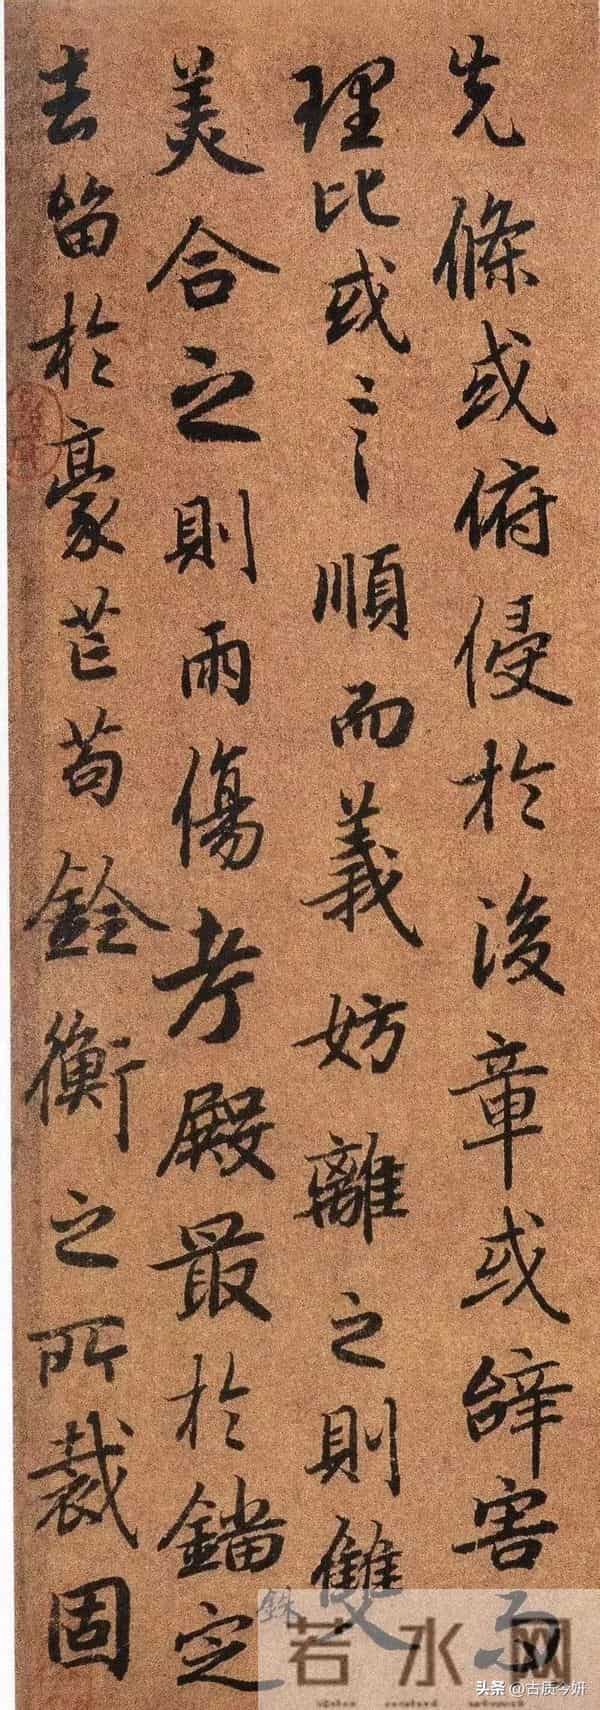 先條或俯侵於後章或辭害而
理比或言順而義妨離之則雙
美合之則兩傷考殿最於錙銖定
去留於豪芒苟銓衡之所裁固
若水网
头条 @古质今妍